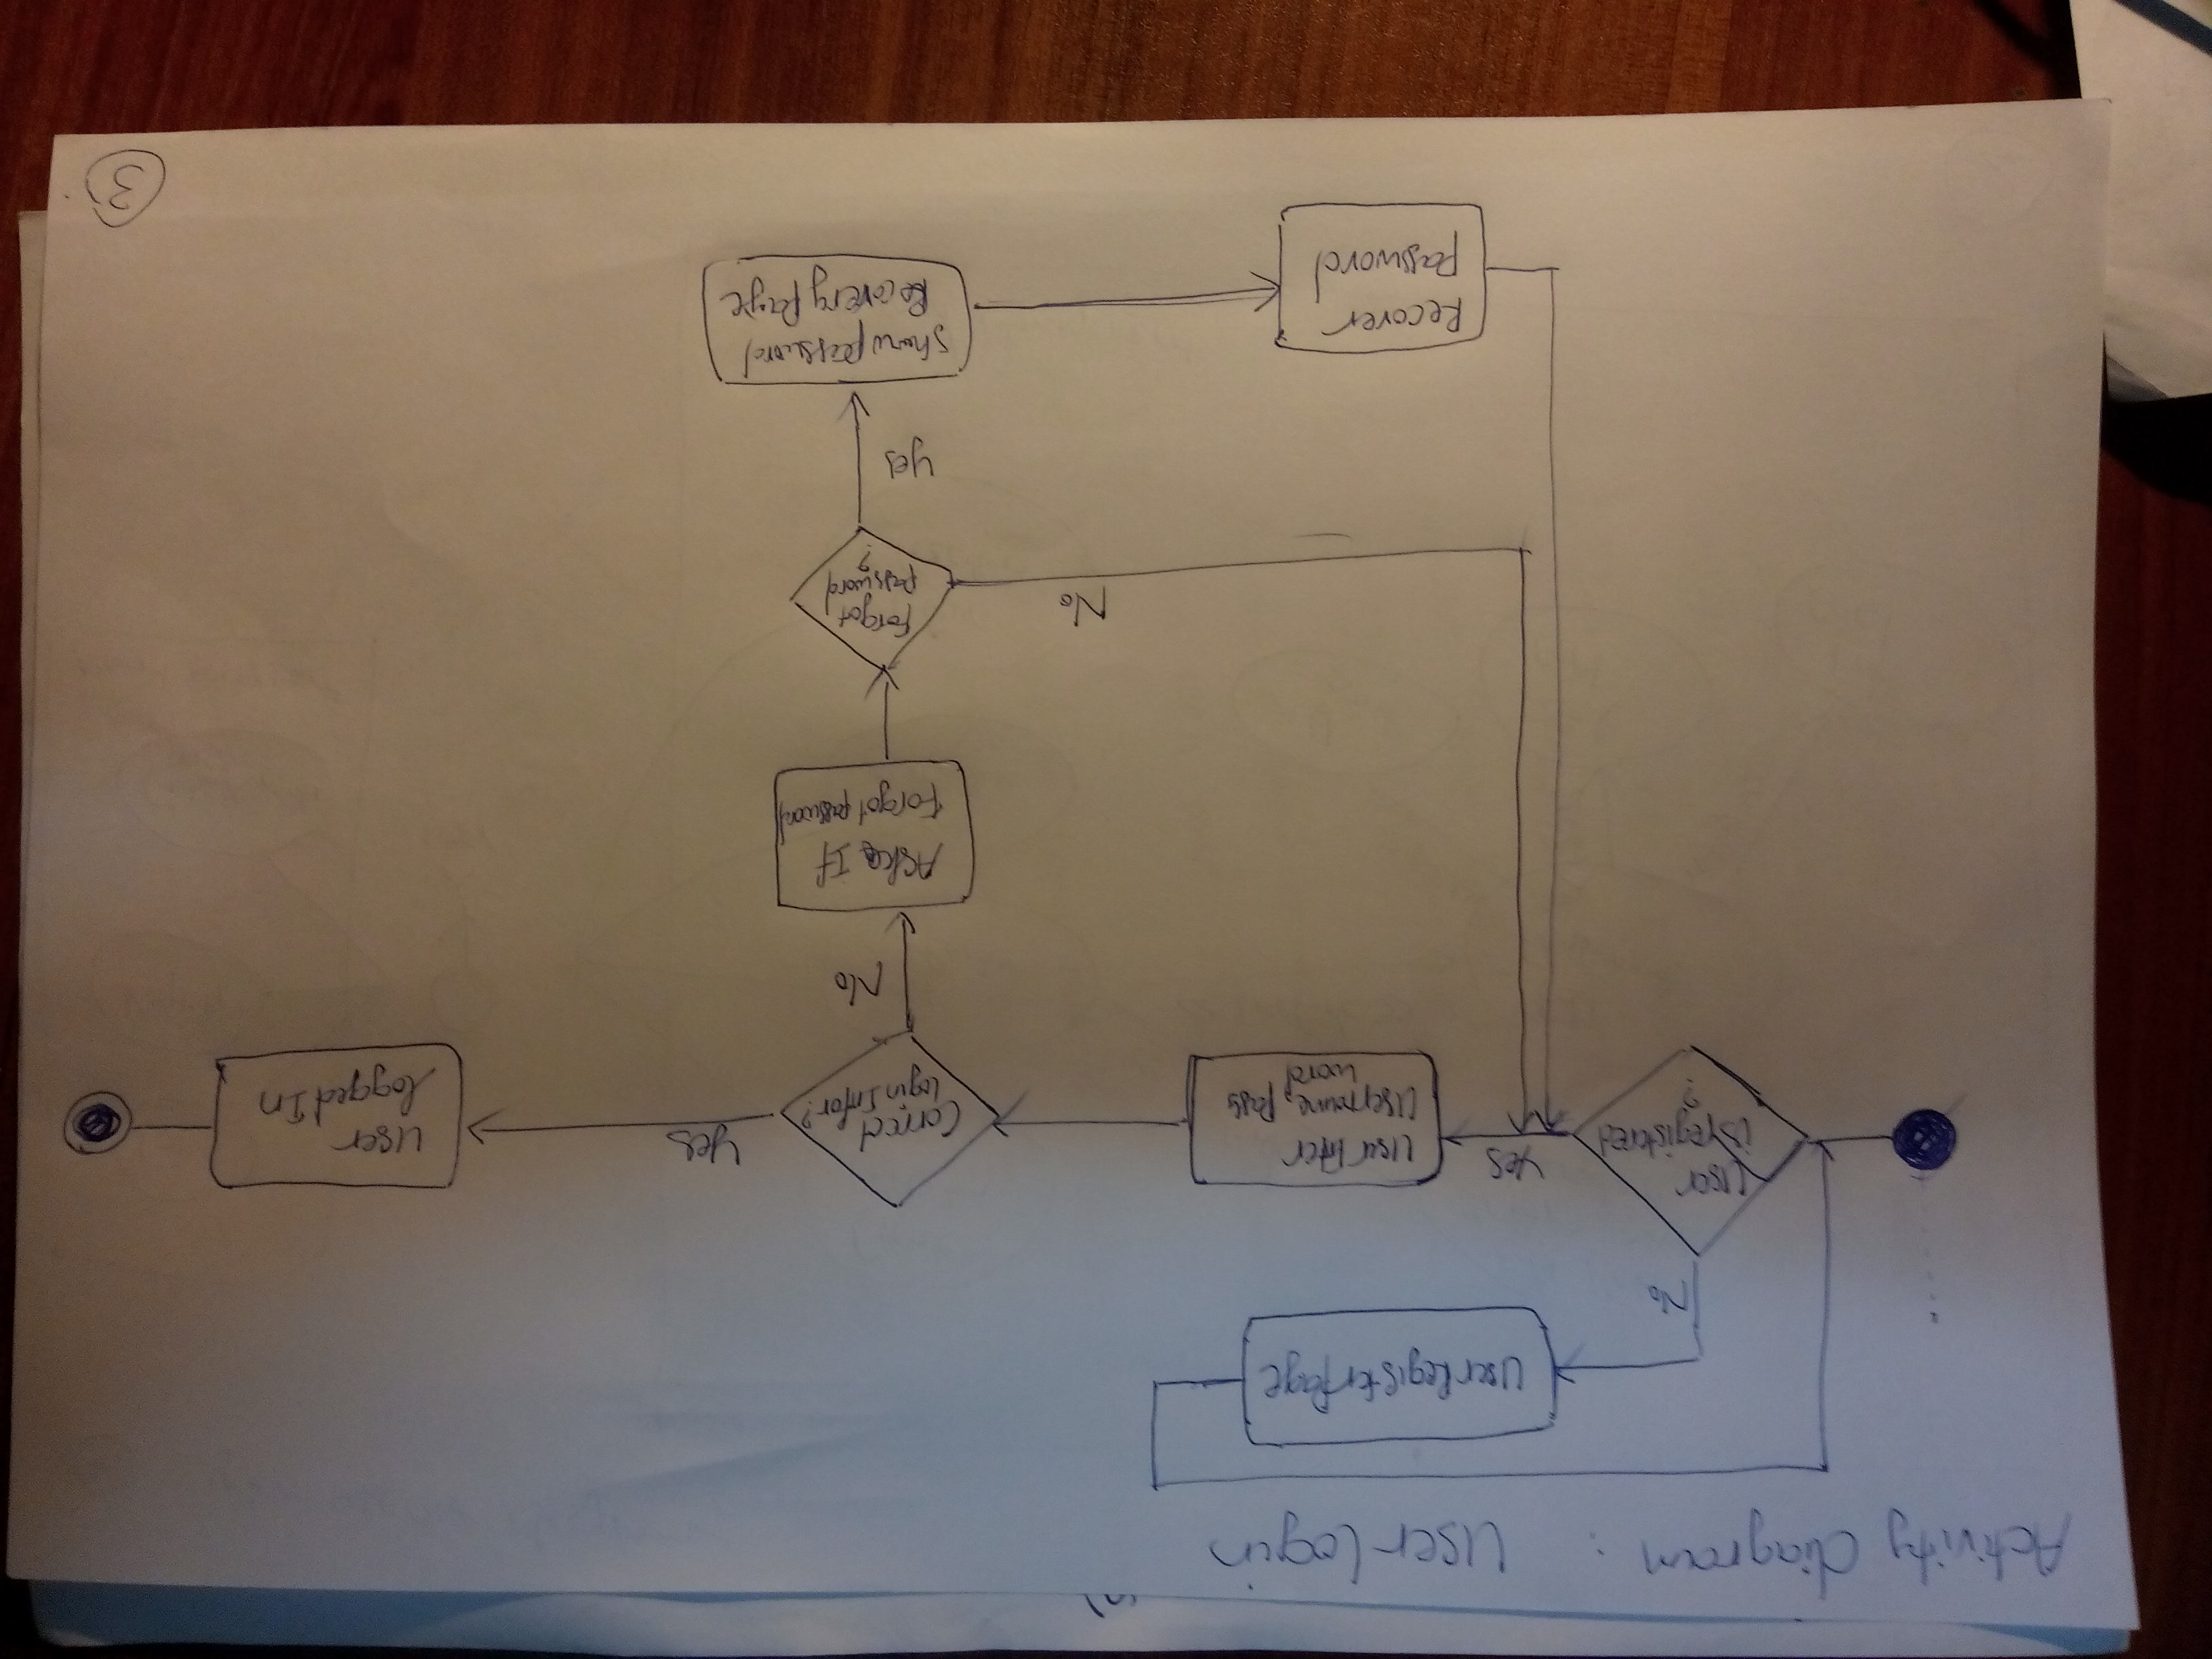 Activity diagram : User Login
User Register Page
No
User
is registered
?
Yes
User Enter
Username, Pass
word
Correct
Login Infor?
Yes
User
Logged In
No
Aske If
Forgot password
Forgot
password
?
No
Yes
Show password
Recovery Page
Recover
password
3